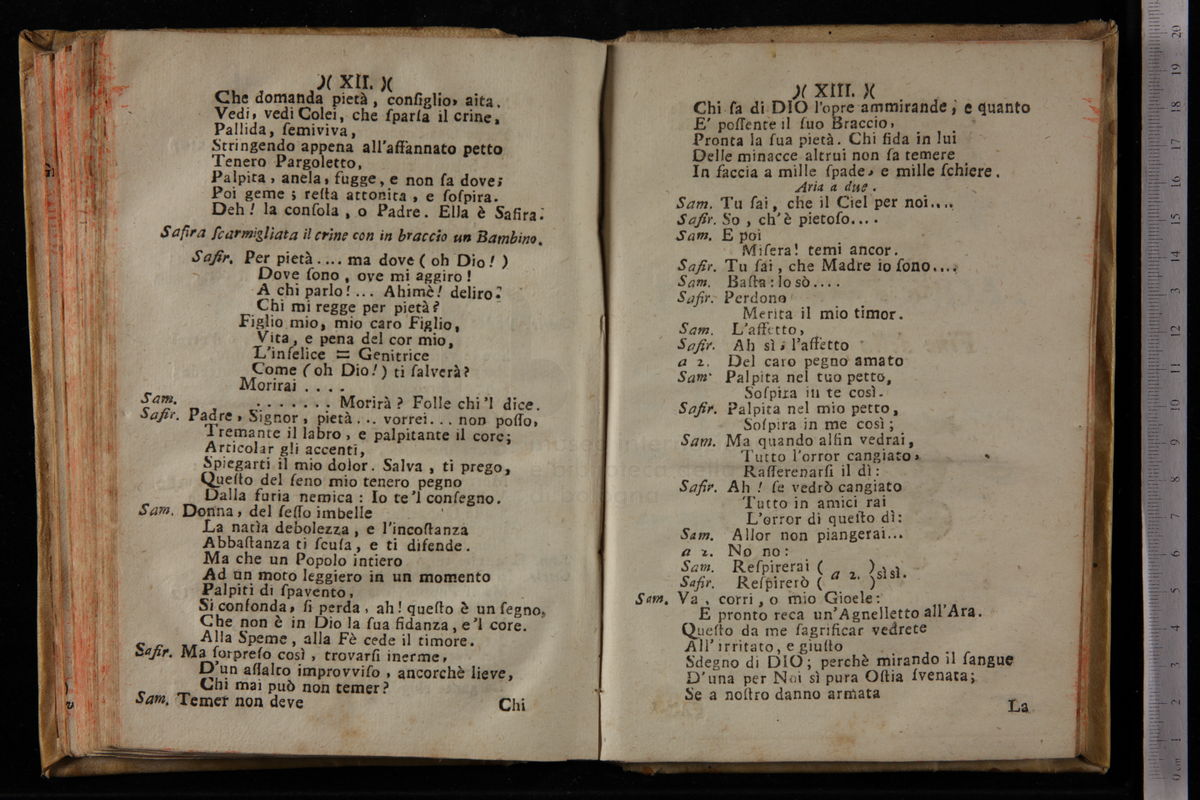 )( XII. )(
Che domanda pietà, conſiglio, aita.
Vedi, vedi Colei, che ſparſa il crine,
Pallida, ſemiviva,
Stringendo appena all'affannato petto
Tenero Pargoletto,
Palpita, anela, fugge, e non ſa dove;
Poi geme; reſta attonita, e ſoſpira.
Deh! la conſola, o Padre. Ella è Safira.
Safira ſcarmigliata il crine con in braccio un Bambino.
Safir. Per pietà .... ma dove (oh Dio!)
Dove ſono, ove mi aggiro!
A chi parlo!... Ahimè! deliro!
Chi mi regge per pietà?
Figlio mio, mio caro Figlio,
Vita, e pena del cor mio,
L'infelice = Genitrice
Come (oh Dio!) ti ſalverà?
Morirai ....
Sam. ....... Morirà? Folle chi 'l dice.
Safir. Padre, Signor, pietà... vorrei... non poſſo,
Tremante il labro, e palpitante il core;
Articolar gli accenti,
Spiegarti il mio dolor. Salva, ti prego,
Queſto del ſeno mio tenero pegno
Dalla furia nemica: Io te'l conſegno.
Sam. Donna, del ſeſſo imbelle
La natìa debolezza, e l'incoſtanza
Abbaſtanza ti ſcuſa, e ti difende.
Ma che un Popolo intiero
Ad un moto leggiero in un momento
Palpiti di ſpavento,
Si confonda, ſi perda, ah! queſto è un ſegno,
Che non è in Dio la ſua fidanza, e'l core.
Alla Speme, alla Fè cede il timore.
Safir. Ma ſorpreſo così, trovarſi inerme,
D'un aſſalto improvviſo, ancorchè lieve,
Chi mai può non temer?
Sam. Temer non deve
Chi
)( XIII. )(
Chi ſa di DIO l'opre ammirande, e quanto
E' poſſente il ſuo Braccio,
Pronta la ſua pietà. Chi fida in lui
Delle minacce altrui non ſa temere
In faccia a mille ſpade, e mille ſchiere.
Aria a due.
Sam. Tu ſai, che il Ciel per noi....
Safir. So, ch'è pietoſo....
Sam. E poi
Miſera! temi ancor.
Safir. Tu ſai, che Madre io ſono....
Sam. Baſta: lo sò....
Safir. Perdono
Merita il mio timor.
Sam. L'affetto,
Safir. Ah sì; l'affetto
a 2. Del caro pegno amato
Sam. Palpita nel tuo petto,
Soſpira in te così.
Safir. Palpita nel mio petto,
Soſpira in me così;
Sam. Ma quando alfin vedrai,
Tutto l'orror cangiato,
Raſſerenarſi il dì:
Safir. Ah! ſe vedrò cangiato
Tutto in amici rai
L'orror di queſto dì:
Sam. Allor non piangerai...
a 2. No no:
Sam. Reſpirerai ( a 2. )sì sì.
Safir. Reſpirerò (
Sam. Va, corri, o mio Gioele:
E pronto reca un'Agnelletto all'Ara.
Queſto da me ſagrificar vedrete
All'irritato, e giuſto
Sdegno di DIO; perchè mirando il ſangue
D'una per Noi sì pura Oſtia ſvenata;
Se a noſtro danno armata
La